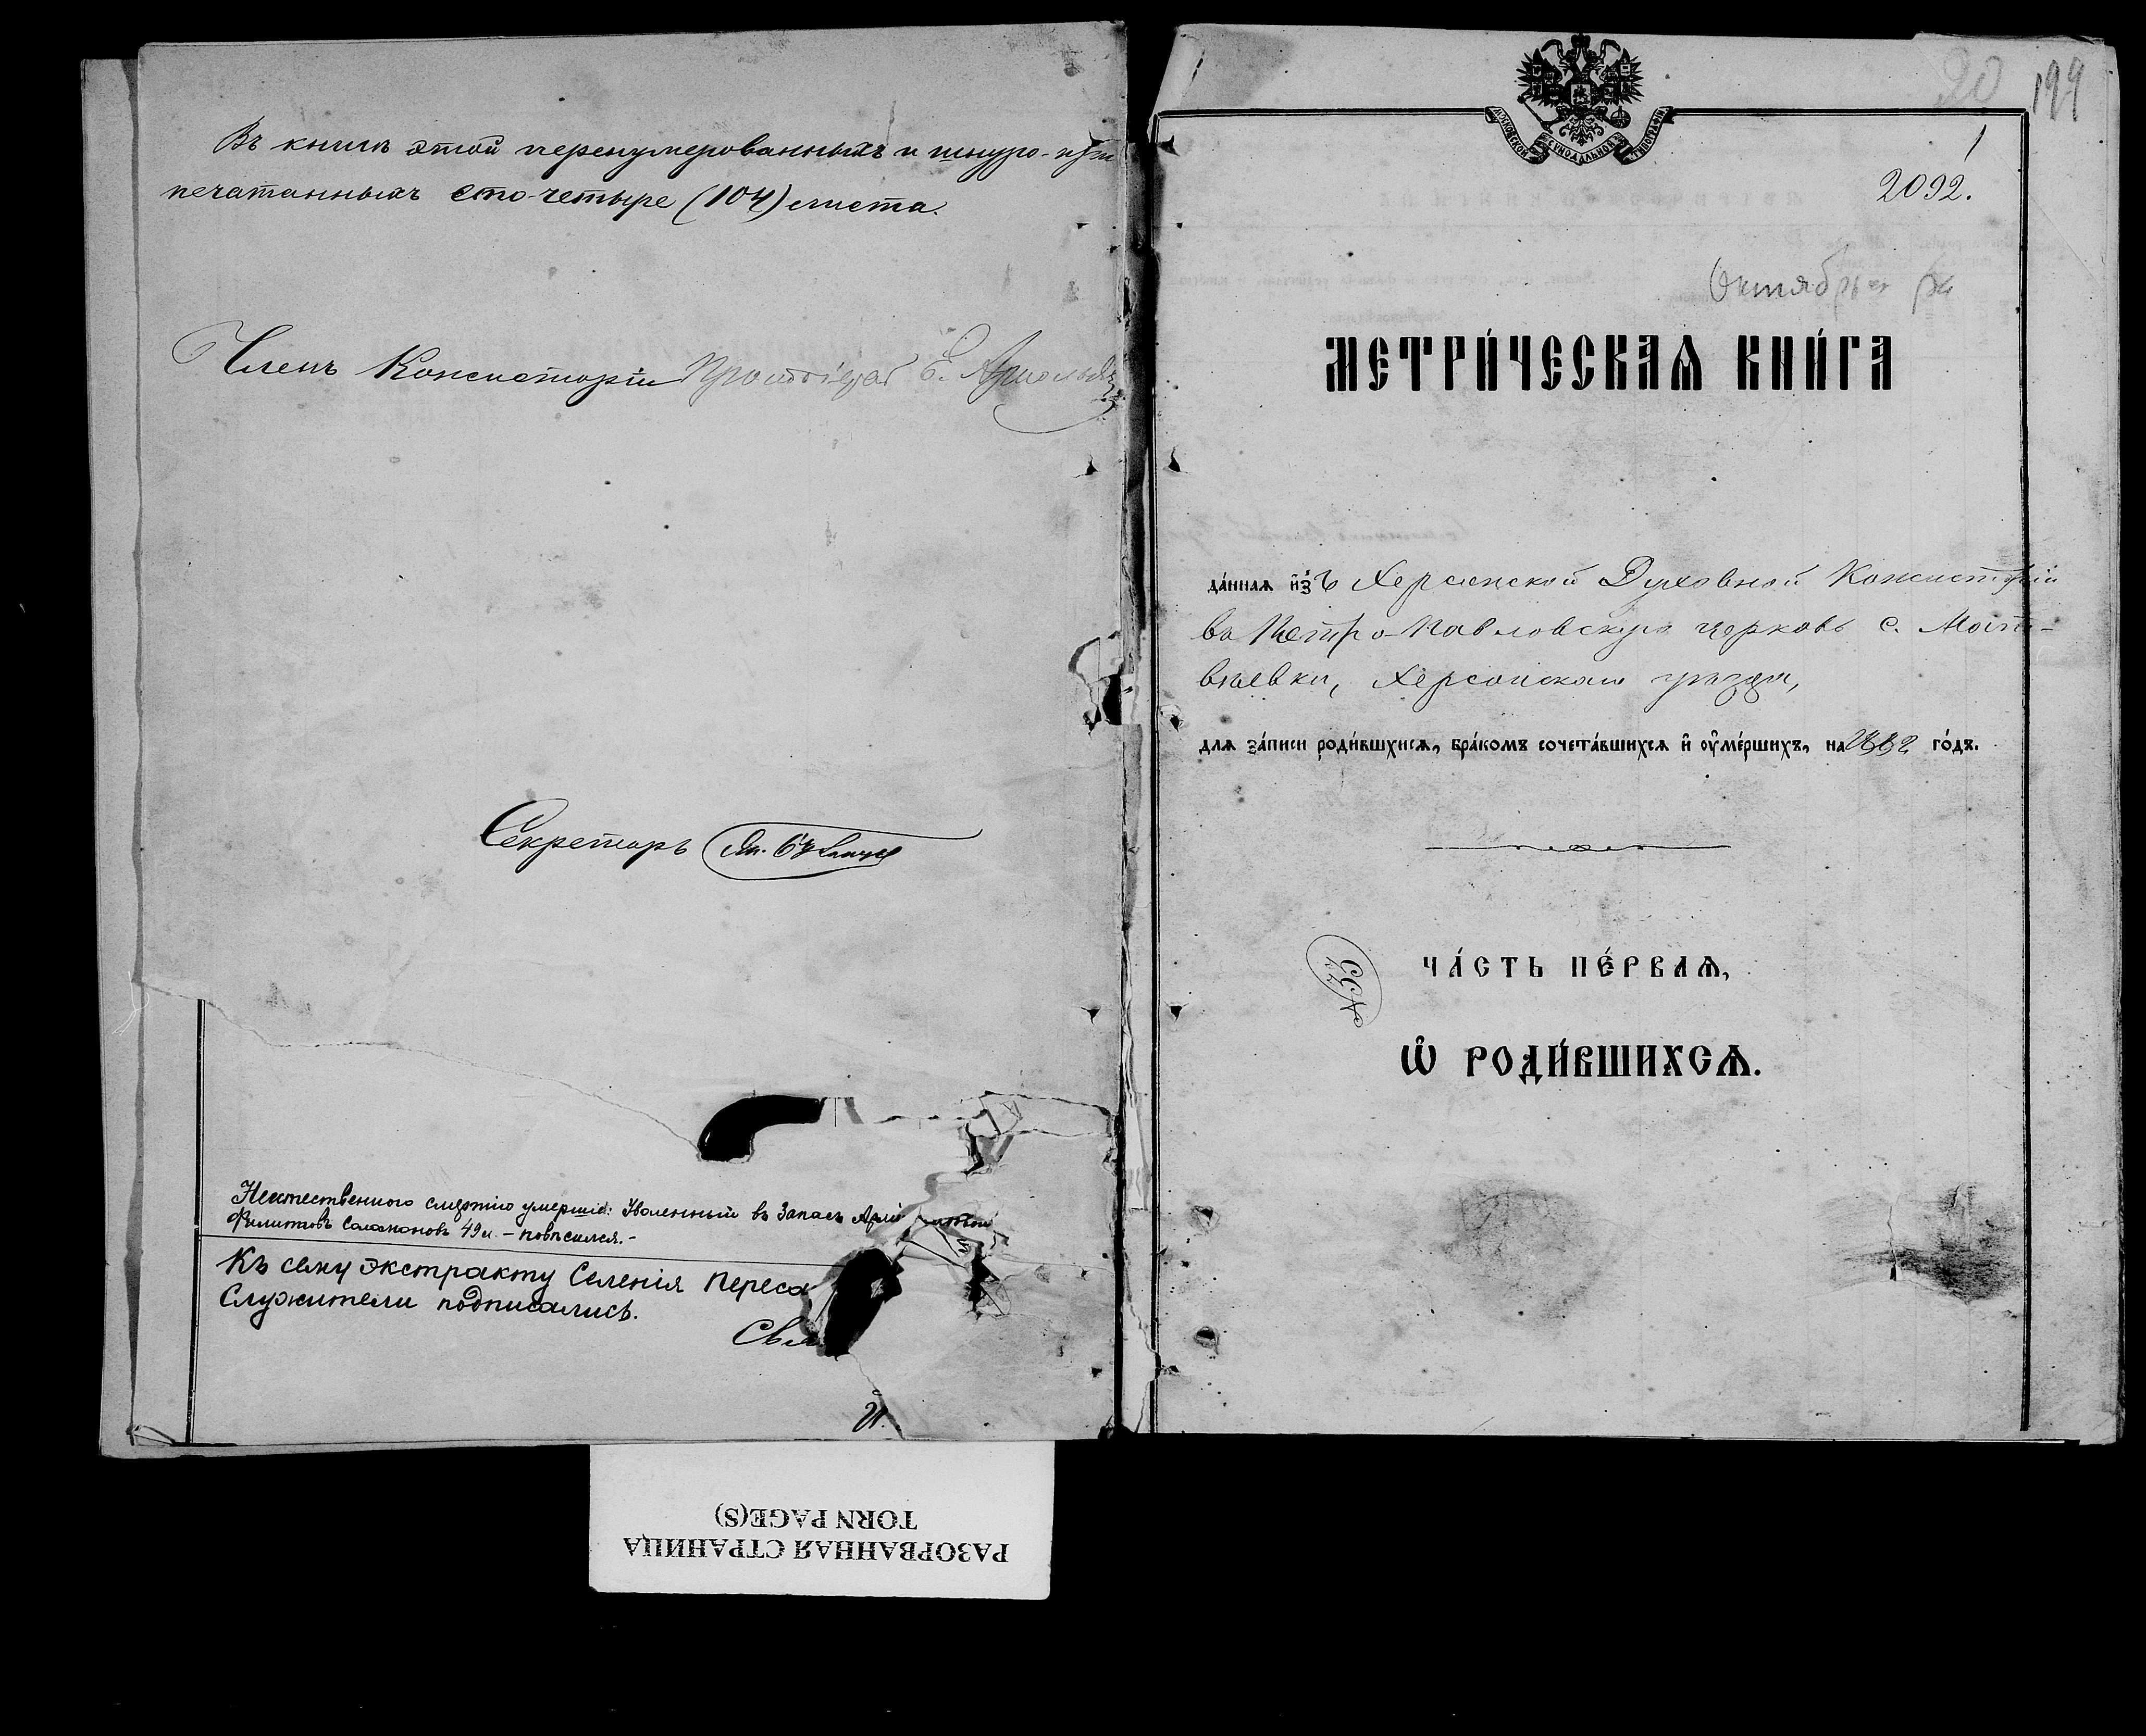 Въ книгѣ этой перенумерованныхъ и шнуро-
печатанныхъ сто-четыре (104) листа.
Членъ Консисторіи Протоіерей
Секретарь
Неестественною смертію умершіе: Уволенный въ Запасъ
Филиповъ Саламоновъ 49 л. – повѣсился. –
Къ сему экстракту Селенія Переса
Служители подписались.
Свя
РАЗОРВАННАЯ СТРАНИЦА
TORN PAGE(S)
20 199
1
МОСКОВСКОЙ СѴНОДАЛЬНОЙ ТИПОГРАФІИ
2092.
Октябрь
МЕТРИ́ЧЕСКАѦ КНИ́ГА
да́ннаѧ и҆зъ Херсонской Духовной Консисторіи
въ Петро-Павловскую церковь с. Мат-
вѣевки, Херсонскаго уѣзда,
для за́писи роди́вшихсѧ, бра́комъ сочета́вшихсѧ и҆ ᲂу҆ме́ршихъ, на 1882 го́дъ.
ЧА́СТЬ ПЕ́РВАѦ,
Ѡ҆ РОДИ́ВШИХСѦ.